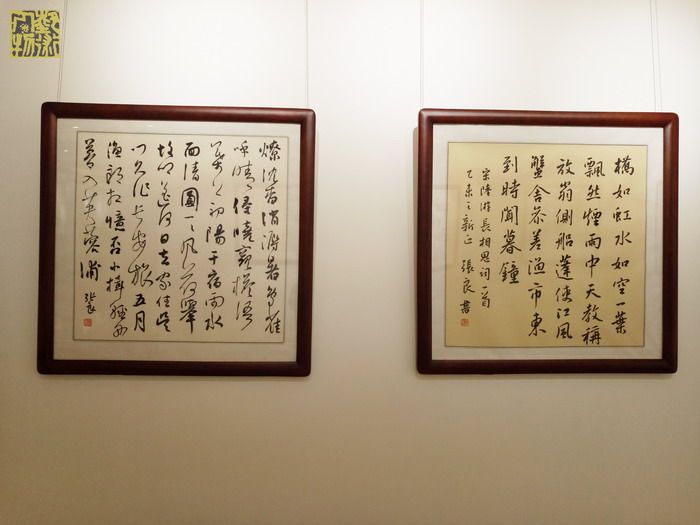 燎沈香消溽暑鸟雀
呼晴侵曉窺檐语
葉上初陽干宿雨水
面清圓一一风荷舉
故鄉遥何日去家住吴
门久作长安旅五月
渔郎相憶否小楫轻舟
夢入芙蓉浦
張良
橋如虹水如空一葉
飄然煙雨中天教稱
放翁側船蓬使江風
蟹舍參差漁市東
到時聞暮鐘
宋陸游長相思詞一首
乙未之新正 張良書